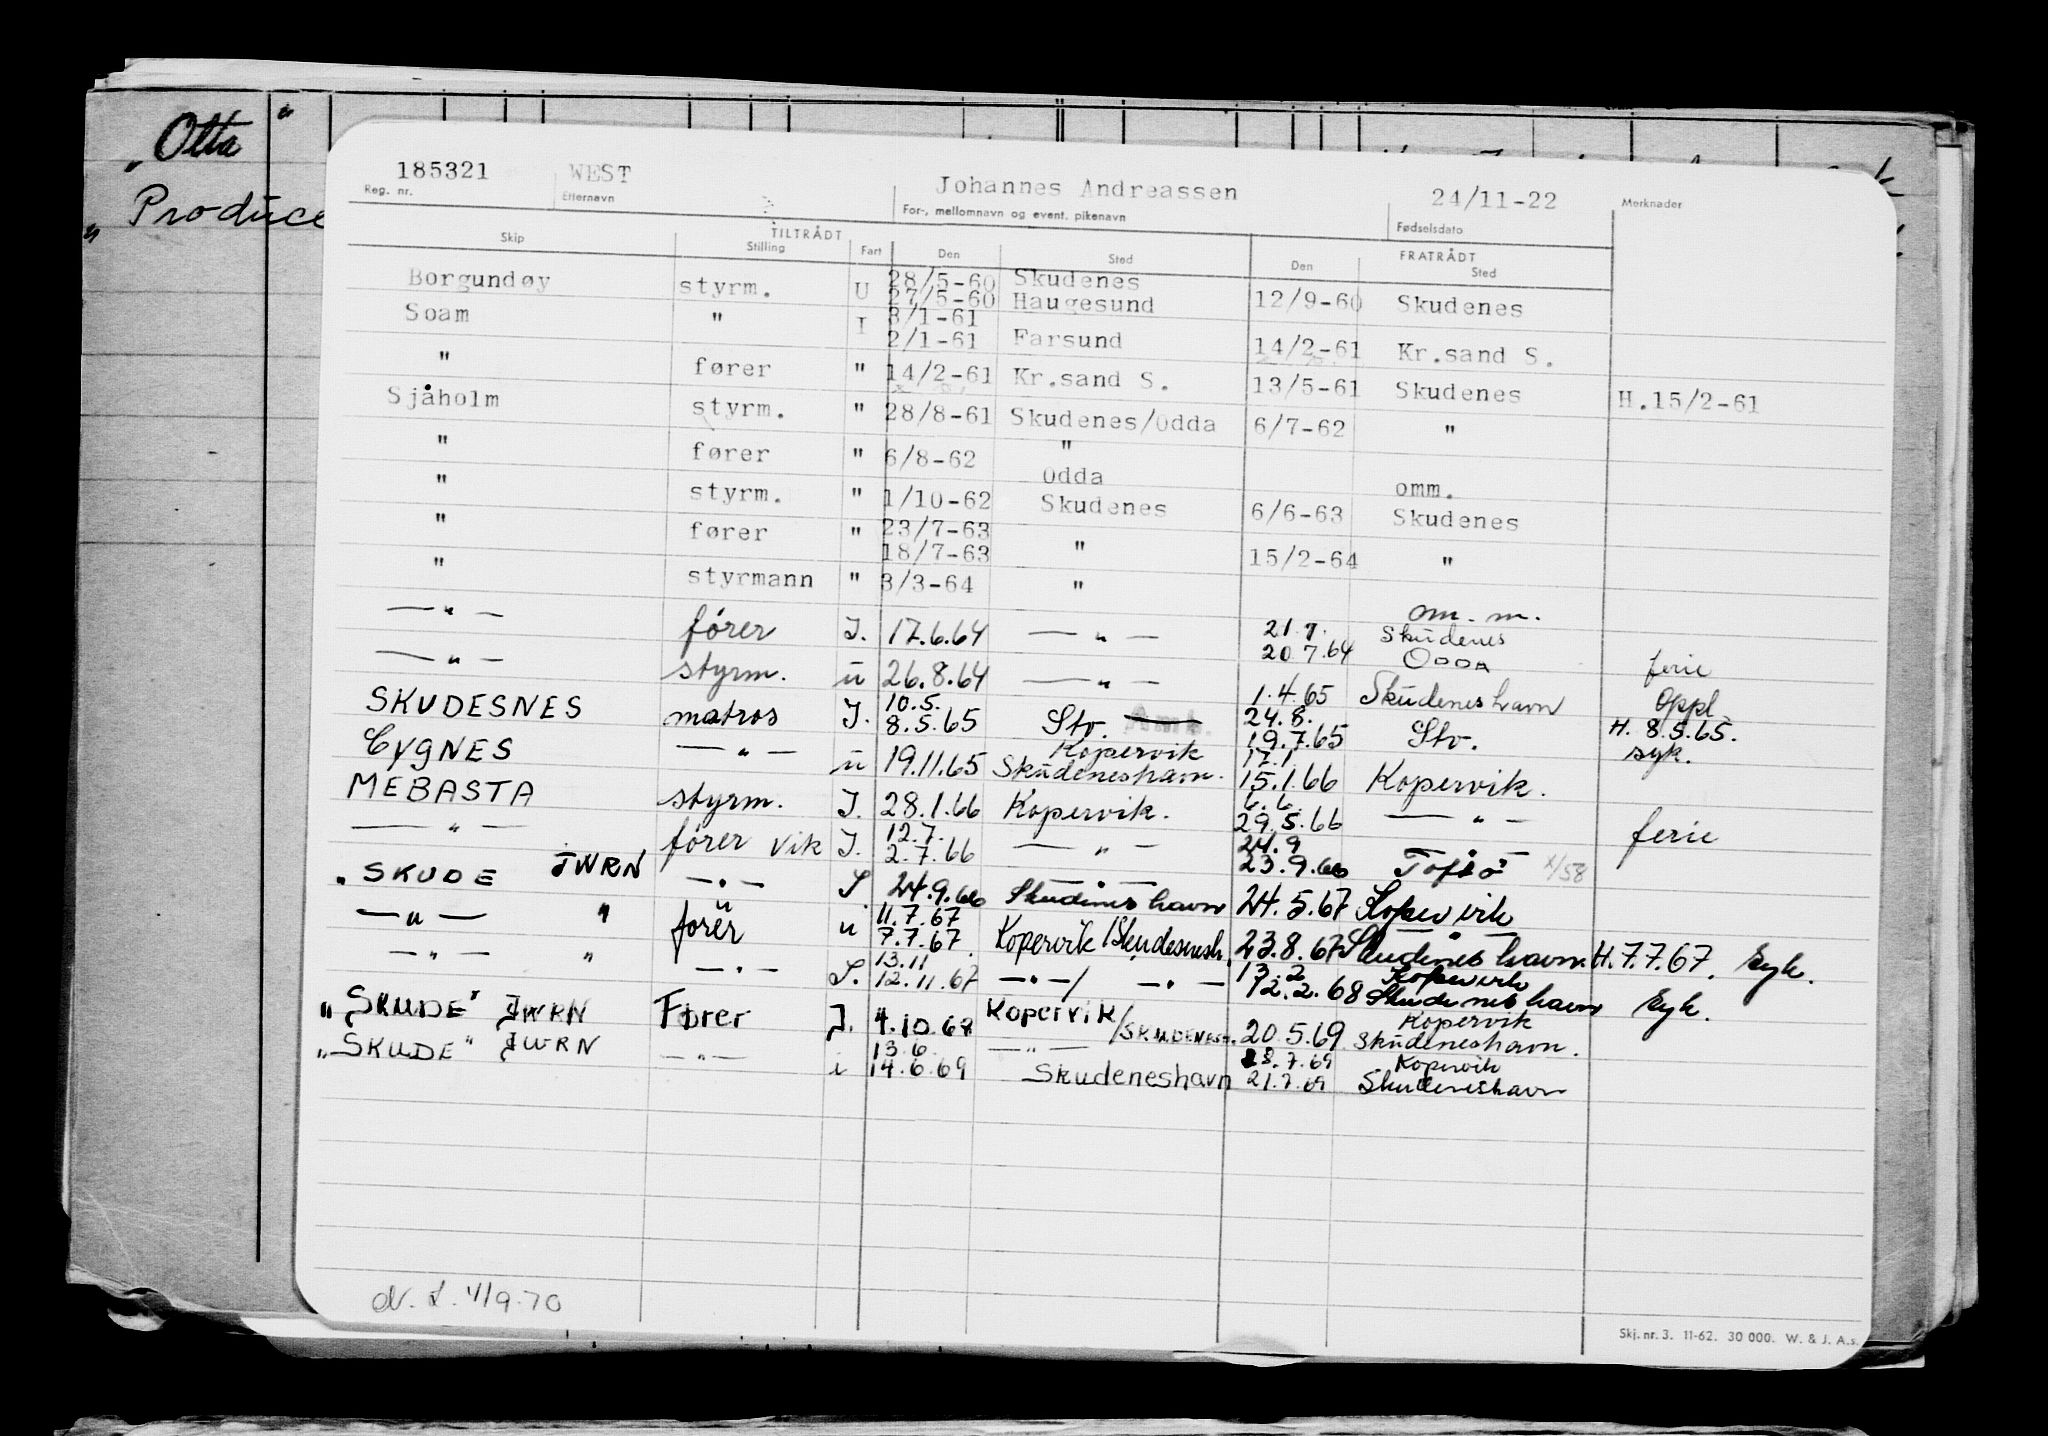 „Otta"
„Produce
185321 WEST Johannes Andreassen 24/11-22
Reg. nr. Efternavn For-, mellomnavn og event. pikenavn Fødselsdato Merknader
TILTRÅDT FRATRÅDT
Skip Stilling Fart Den Sted Den Sted
28/5-60 Skudenes
Borgundøy styrm. U 27/5-60 Haugesund 12/9-60 Skudenes
3/1-61
Soam " I 2/1-61 Farsund 14/2-61 Kr.sand S.
" fører " 14/2-61 Kr.sand S. 13/5-61 Skudenes H.15/2-61
Sjåholm styrm. " 28/8-61 Skudenes/Odda 6/7-62 "
" fører " 6/8-62 "
Odda omm.
" styrm. " 1/10-62 Skudenes 6/6-63 Skudenes
23/7-63
" fører " 18/7-63 " 15/2-64 "
" styrmann " 3/3-64 " om. m.
—"— fører I. 17.6.64 —"— 21.7. Skudenes
20.7.64 Odda ferie
—"— styrm. u 26.8.64 —"— 1.4.65 Skudeneshavn Oppl.
10.5. 24.8.
SKUDESNES matros I. 8.5.65 Stv. 19.7.65 Stv. H. 8.5.65. syk.
Kopervik 17.1
CYGNES —"— u 19.11.65 Skudeneshavn. 15.1.66 Kopervik.
6.6.
MEBASTA styrm. I. 28.1.66 Kopervik. 29.5.66 —"— ferie
12.7. 24.9 —"—
—"— fører vik I. 2.7.66 —"— 23.9.66 Toftö x/58
—"—
„SKUDE JWRN —"— I. 24.9.66 Skudeneshavn 24.5.67 Kopervik
11.7.67 —"—
—"— " fører u 7.7.67. Kopervik/Skudesnesh. 23.8.67 Skudeneshavn. H.7.7.67. syk.
13.11 13.2 Kopervik
—"— " —"— I. 12.11.67 —"—/ —"— 12.2.68 Skudeneshavn syk.
Kopervik
„SKUDE" JWRN Fører I. 4.10.68 Kopervik/SKUDENESH. 20.5.69 Skudeneshavn.
13.6. —"— 23.7.69 Kopervik
„SKUDE" JWRN —"— i 14.6.69 Skudeneshavn 21.7.69 Skudeneshavn
Skj. nr. 3. 11-62. 30 000. W. & J. A.s.